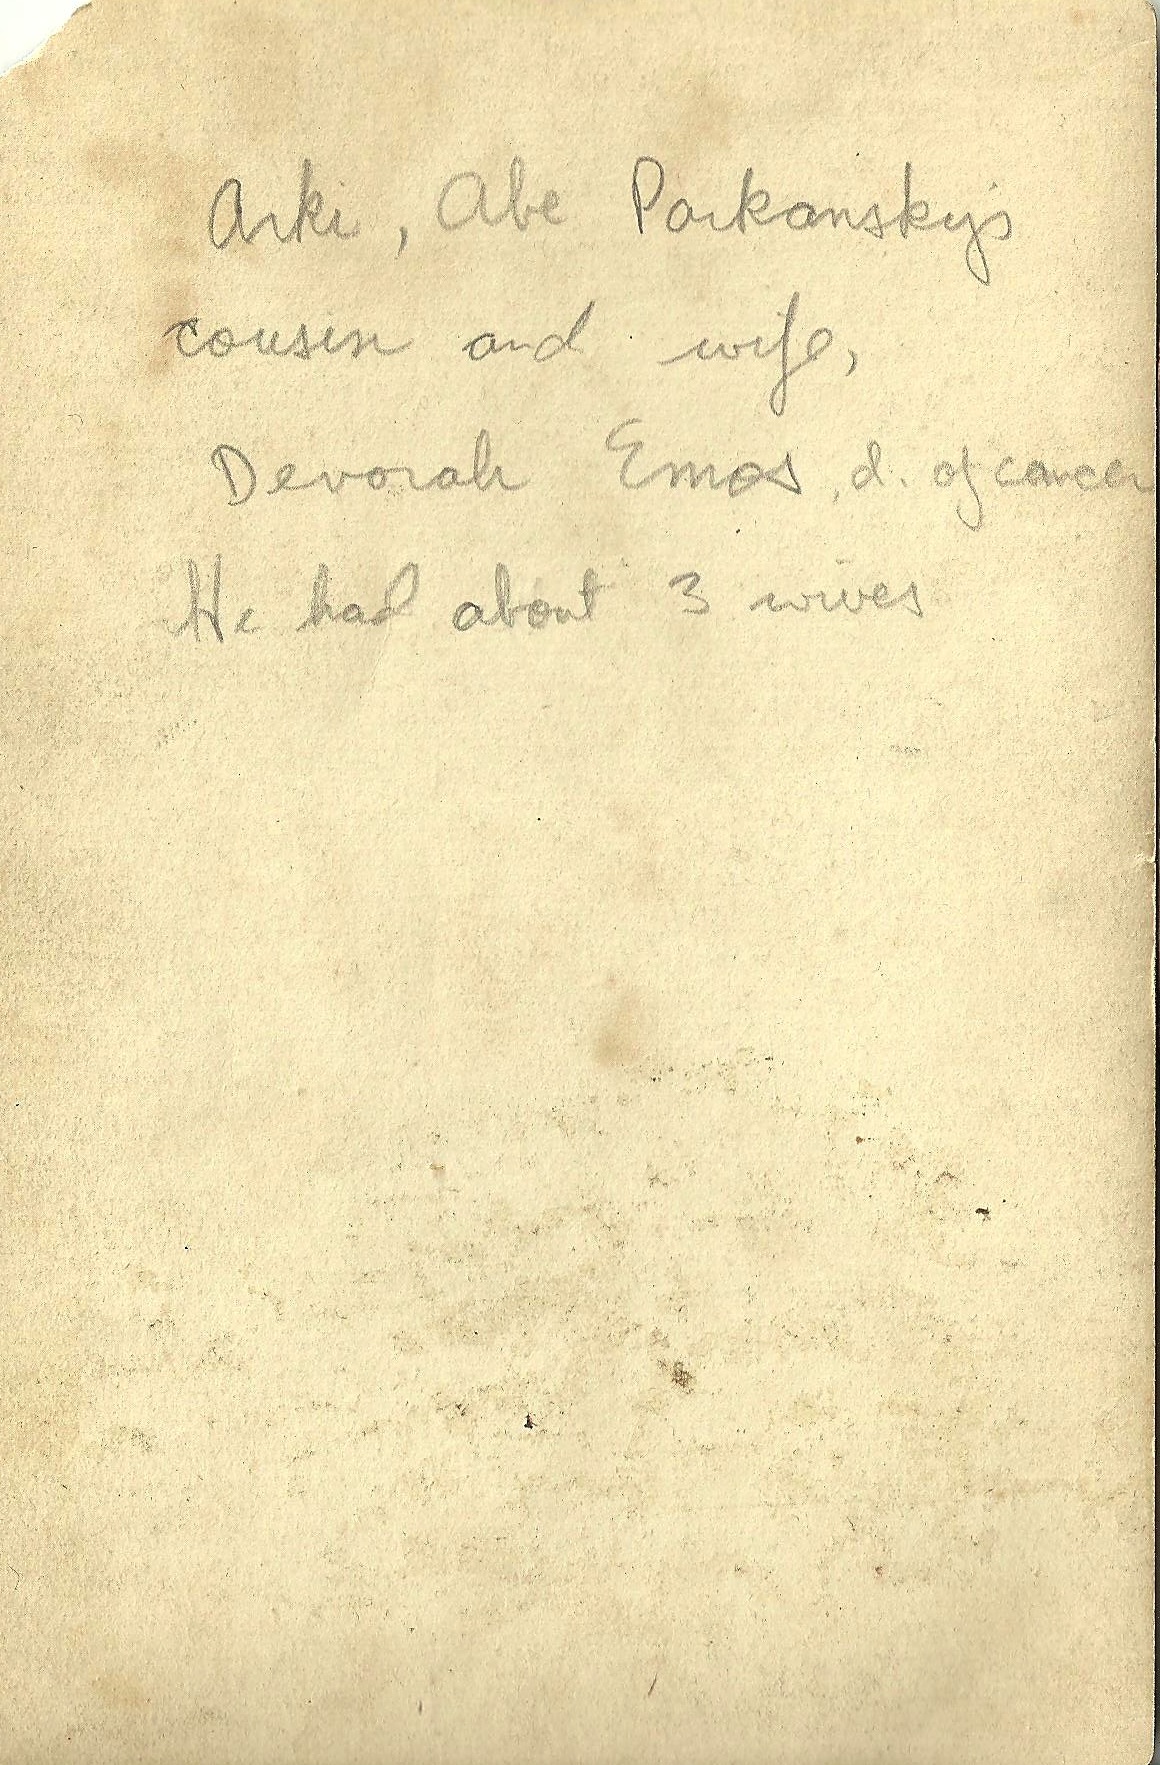 Arki, Abe Parkansky's
cousin and wife,
Devorah Emas, d. of cancer
He had about 3 wives